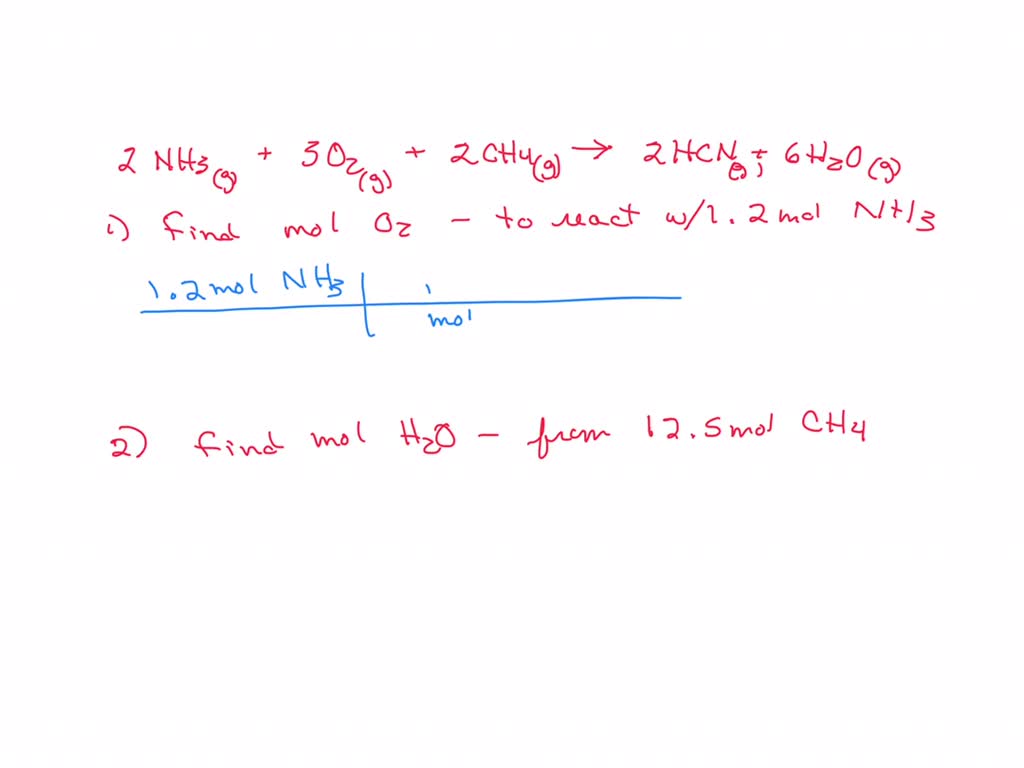 2 NH3(g) + 3O2(g) + 2CH4(g) → 2HCN(g) + 6H2O(g)
1) find mol O2 - to react w/1.2mol NH3
1.2mol NH3
mol
2) find mol H2O - from 12.5mol CH4